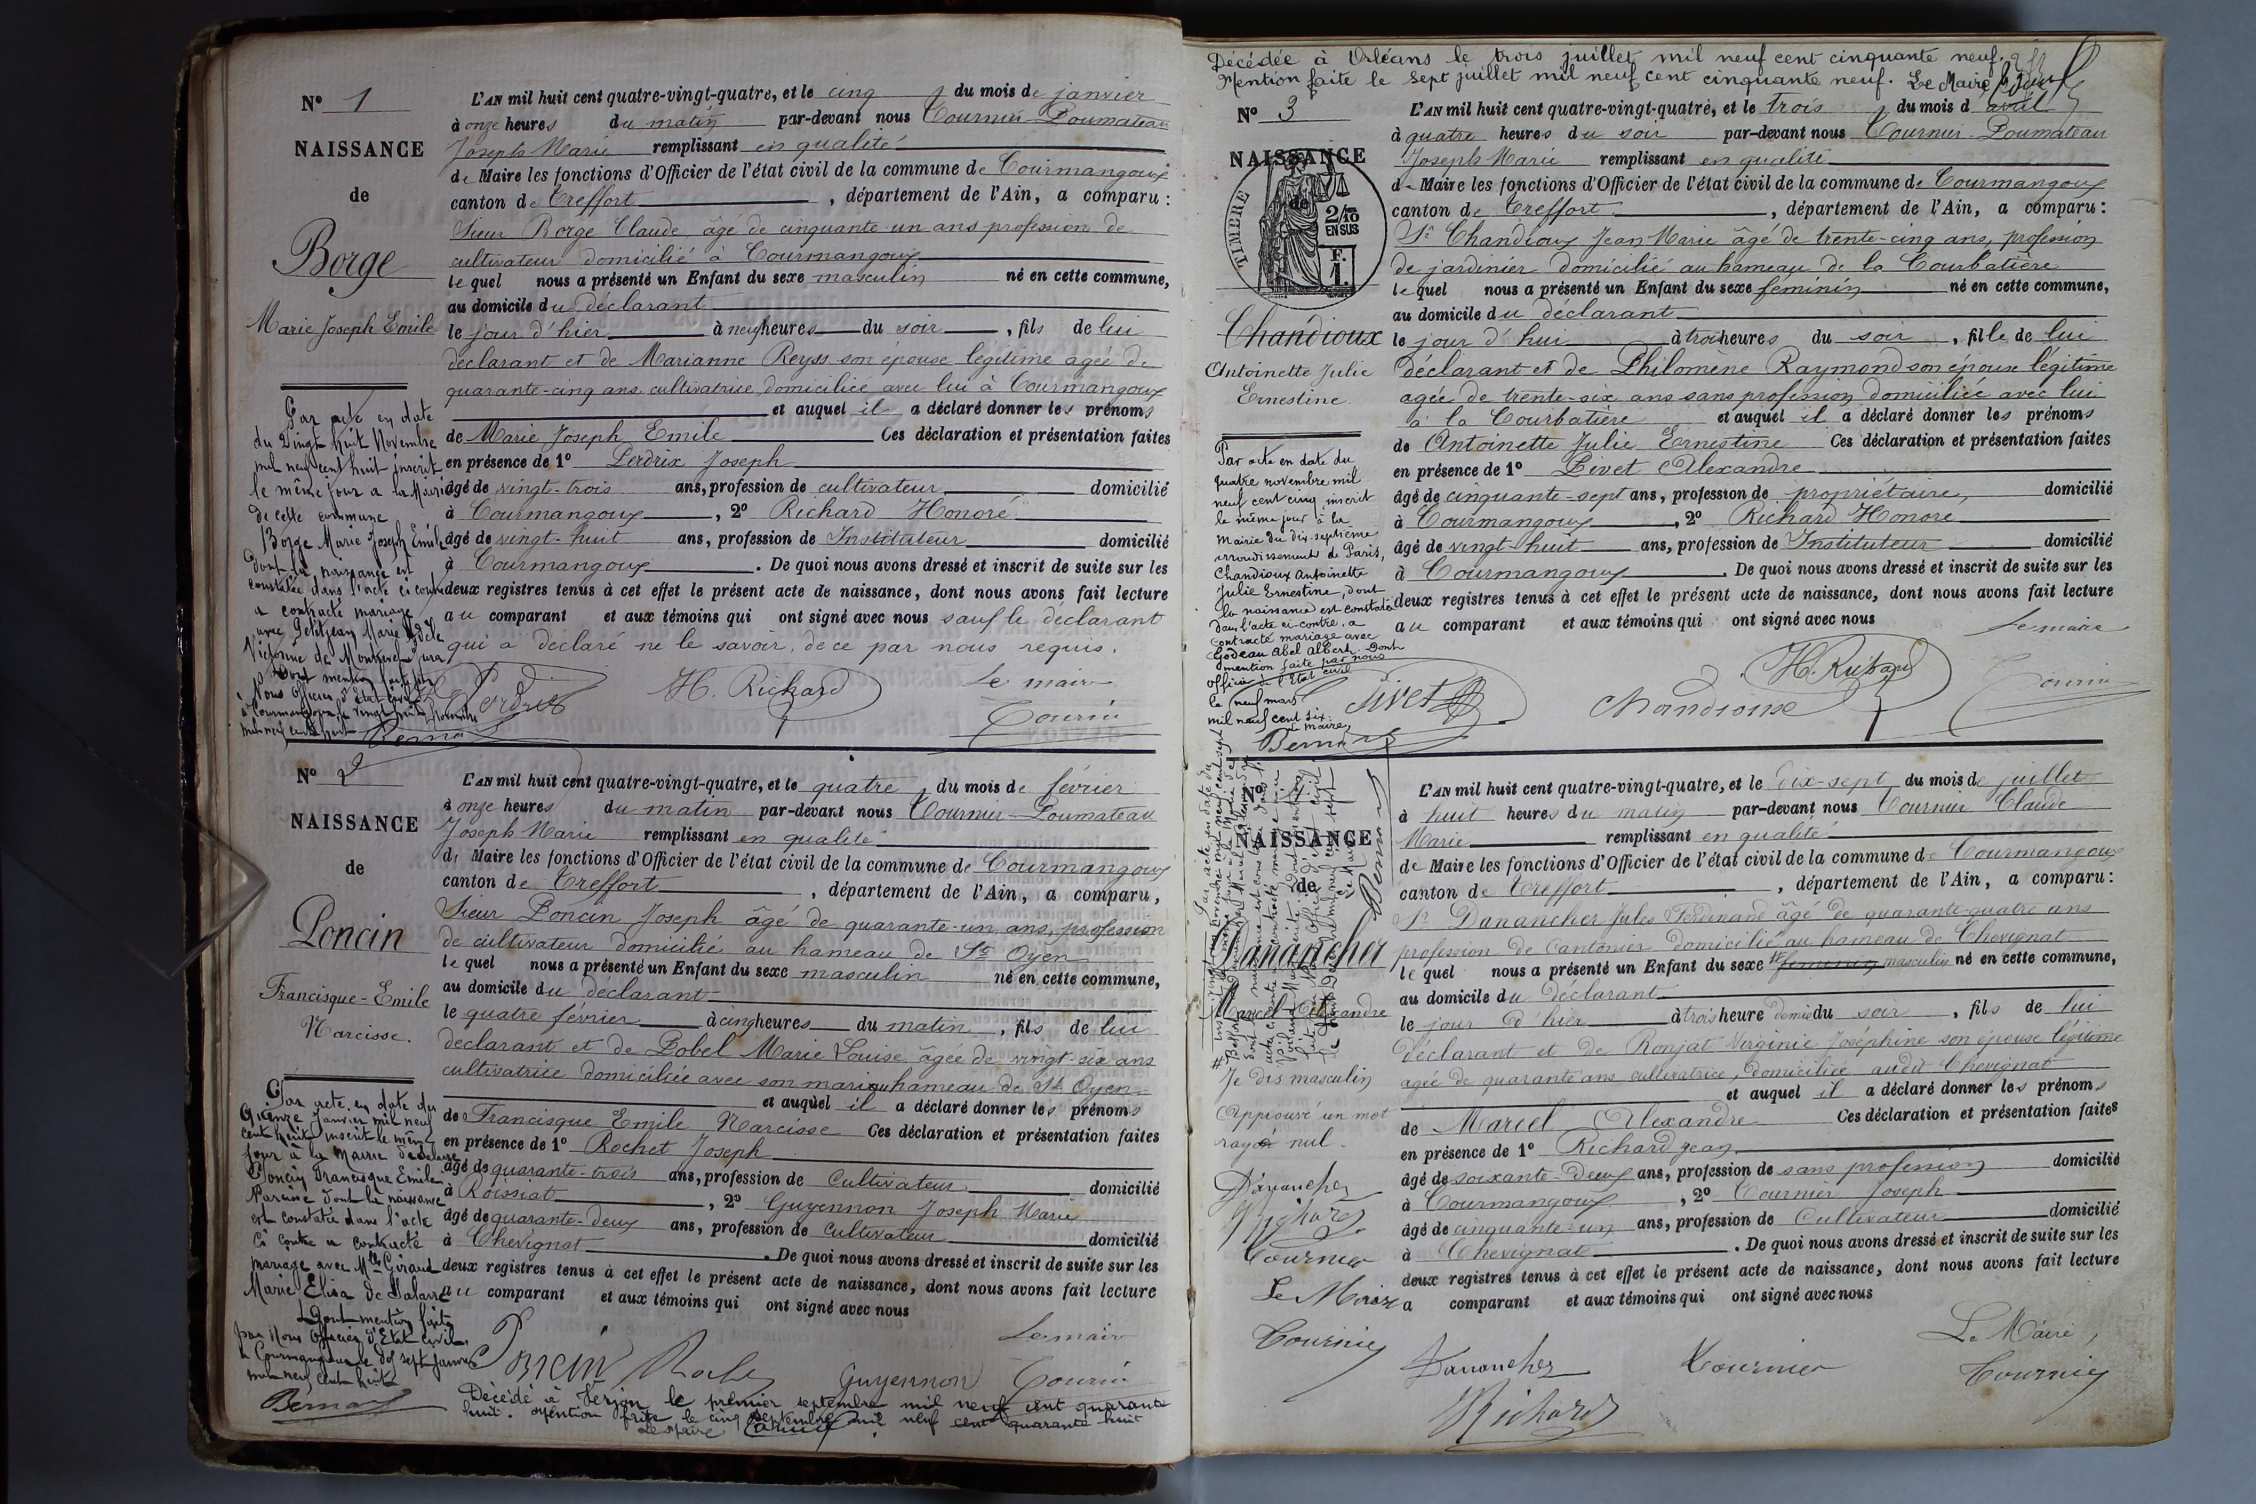 N° 1
NAISSANCE
de
Borge
Marie Joseph Emile
L'AN mil huit cent quatre-vingt-quatre, et le cinq du mois de janvier
à onze heures du matin par-devant nous Tournier-Poumateau
Joseph Marie remplissant en qualité
de Maire les fonctions d'Officier de l'état civil de la commune de Courmangoux
canton de Treffort, département de l'Ain, a comparu :
Sieur Borge Claude, âgé de cinquante un ans profession de
cultivateur domicilié à Courmangoux
lequel nous a présenté un Enfant du sexe masculin né en cette commune,
au domicile du déclarant
le jour d'hier à neuf heures du soir, fils de lui
déclarant et de Marianne Reyss son épouse légitime agée de
quarante-cinq ans cultivatrice domiciliée avec lui à Courmangoux
et auquel il a déclaré donner les prénoms
de Marie Joseph Emile Ces déclaration et présentation faites
en présence de 1° Perdrix Joseph
âgé de vingt-trois ans, profession de cultivateur domicilié
à Courmangoux, 2° Richard Honoré
âgé de vingt-huit ans, profession de Instituteur domicilié
à Courmangoux. De quoi nous avons dressé et inscrit de suite sur les
deux registres tenus à cet effet le présent acte de naissance, dont nous avons fait lecture
au comparant et aux témoins qui ont signé avec nous sauf le déclarant
qui a déclaré ne le savoir, de ce par nous requis.
Perdrix H. Richard Le maire
Tournier
Par acte en date
du Vingt huit Novembre
mil neuf cent huit inscrit
le même jour a la Mairie
de cette commune
Borge Marie Joseph Emile
dont la naissance est
constatée dans l'acte ci contre
a contracté mariage
avec Petitjean Marie Adèle
Dont mention faite par
Nous Officier d'Etat civil
à Courmangoux le vingt huit Novembre
mil neuf cent huit
Bernard
N° 2
NAISSANCE
de
Poncin
Francisque-Emile
Narcisse.
L'AN mil huit cent quatre-vingt-quatre, et le quatre du mois de février
à onze heures du matin par-devant nous Tournier-Poumateau
Joseph Marie remplissant en qualité
de Maire les fonctions d'Officier de l'état civil de la commune de Courmangoux
canton de Treffort, département de l'Ain, a comparu,
Sieur Poncin Joseph âgé de quarante-un ans, profession
de cultivateur domicilié au hameau de St Oyen
lequel nous a présenté un Enfant du sexe masculin né en cette commune,
au domicile du déclarant
le quatre février à cinq heures du matin, fils de lui
déclarant et de Bobel Marie Louise âgée de vingt-six ans
cultivatrice domiciliée avec son mari au hameau de St Oyen
et auquel il a déclaré donner les prénoms
de Francisque Emile Narcisse Ces déclaration et présentation faites
en présence de 1° Rochet Joseph
âgé de quarante-trois ans, profession de Cultivateur domicilié
à Roissiat, 2° Guyennon Joseph Marie
âgé de quarante-deux ans, profession de Cultivateur domicilié
à Chevignat. De quoi nous avons dressé et inscrit de suite sur les
deux registres tenus à cet effet le présent acte de naissance, dont nous avons fait lecture
au comparant et aux témoins qui ont signé avec nous
Le maire
Poncin Rochet Guyennon Tournier
Par acte en date du
Quinze Janvier mil neuf
cent huit inscrit le même
jour à la Mairie de
Poncin Francisque Emile
Narcisse dont la naissance
est constatée dans l'acte
ci contre a contracté
mariage avec Mlle Giraud
Marie Elisa
Dont mention faite
par Nous Officier d'Etat civil,
à Courmangoux le dix sept Janvier
mil neuf cent huit
Bernard
Décédé à Verjon le premier septembre mil neuf cent quarante
huit. Mention faite le cinq septembre mil neuf cent quarante huit
Le Maire
Décédée à Orléans le trois juillet mil neuf cent cinquante neuf.
Mention faite le sept juillet mil neuf cent cinquante neuf. Le Maire
N° 3
NAISSANCE
de
TIMBRE
2/10
EN SUS
F.
1.
Chandioux
Antoinette Julie
Ernestine
L'AN mil huit cent quatre-vingt-quatre, et le trois du mois d'avril
à quatre heures du soir par-devant nous Tournier-Poumateau
Joseph Marie remplissant en qualité
de Maire les fonctions d'Officier de l'état civil de la commune de Courmangoux
canton de Treffort, département de l'Ain, a comparu :
Sr Chandioux Jean Marie âgé de trente-cinq ans, profession
de jardinier domicilié au hameau de la Courbatière
lequel nous a présenté un Enfant du sexe féminin né en cette commune,
au domicile du déclarant
le jour d'hui à trois heures du soir, fille de lui
déclarant et de Philomène Raymond son épouse légitime
agée de trente-six ans sans profession domiciliée avec lui
à la Courbatière et auquel il a déclaré donner les prénoms
de Antoinette Julie Ernestine Ces déclaration et présentation faites
en présence de 1° Livet Alexandre
âgé de cinquante-sept ans, profession de propriétaire, domicilié
à Courmangoux, 2° Richard Honoré
âgé de vingt-huit ans, profession de Instituteur domicilié
à Courmangoux. De quoi nous avons dressé et inscrit de suite sur les
deux registres tenus à cet effet le présent acte de naissance, dont nous avons fait lecture
au comparant et aux témoins qui ont signé avec nous
Le maire
Livet Chandioux H. Richard Tournier
Par acte en date du
quatre novembre mil
neuf cent cinq inscrit
le même jour à la
mairie du dix-septième
arrondissement de Paris,
Chandioux Antoinette
Julie Ernestine, dont
la naissance est constatée
dans l'acte ci-contre, a
contracté mariage avec
Godeau Abel Albert. Dont
mention faite par nous
officier de l'Etat civil
le neuf mars
mil neuf cent six.
Le maire,
Bernard
NAISSANCE
de
Danancher
Marcel-Alexandre
L'AN mil huit cent quatre-vingt-quatre, et le dix-sept du mois de juillet
à huit heures du matin par-devant nous Tournier Claude
Marie remplissant en qualité
de Maire les fonctions d'Officier de l'état civil de la commune de Courmangoux
canton de Treffort, département de l'Ain, a comparu :
Sr Danancher Jules Ferdinand âgé de quarante-quatre ans
profession de cantonnier domicilié au hameau de Chevignat
lequel nous a présenté un Enfant du sexe féminin masculin né en cette commune,
au domicile du déclarant
le jour d'hier à trois heure demie du soir, fils de lui
déclarant et de Ronjat Virginie Joséphine son épouse légitime
agée de quarante ans cultivatrice, domiciliée audit Chevignat
et auquel il a déclaré donner les prénoms
de Marcel Alexandre Ces déclaration et présentation faites
en présence de 1° Richard Jean
âgé de soixante-deux ans, profession de sans profession domicilié
à Courmangoux, 2° Tournier Joseph
âgé de cinquante-un ans, profession de Cultivateur domicilié
à Chevignat. De quoi nous avons dressé et inscrit de suite sur les
deux registres tenus à cet effet le présent acte de naissance, dont nous avons fait lecture
a comparant et aux témoins qui ont signé avec nous
Le Maire,
Danancher Tournier Tournier
Richard
Je dis masculin
Approuvé un mot
rayé nul.
Danancher
Richard
Tournier
Le Maire
Tournier